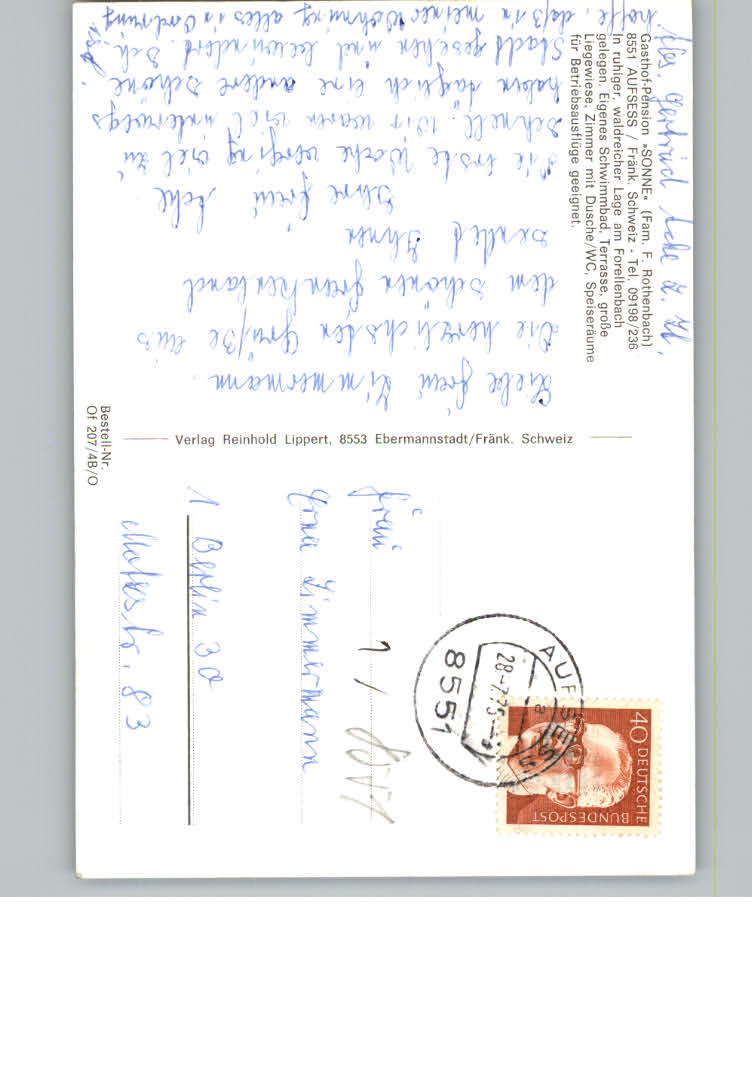 Gasthof-Pension »SONNE« (Fam. F. Rothenbach)
8551 AUFSESS / Fränk. Schweiz - Tel. 09198/236
In ruhiger, waldreicher Lage am Forellenbach
gelegen. Eigenes Schwimmbad, Terrasse, große
Liegewiese. Zimmer mit Dusche/WC, Speiseräume
für Betriebsausflüge geeignet.
Gertrud
Liebe Frau Zimmermann.
Die herzlichsten Grüße aus
dem schönen Frankenland
sendet Ihnen
Ihre Frau
Die erste Woche verging viel zu
schnell. Wir waren viel unterwegs
haben täglich eine andere schöne
Stadt gesehen und bewundert. Ich
hoffe, daß in meiner Wohnung alles in Ordnung
ist.
Verlag Reinhold Lippert, 8553 Ebermannstadt/Fränk. Schweiz
Bestell-Nr.
Of 207/4B/O
Frau
Erna Zimmermann
1 Berlin 30
83
AUFSESS
8551
a
40 DEUTSCHE
BUNDESPOST